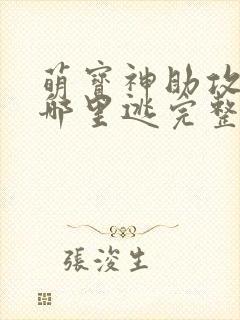 萌寶神助攻
哪里逃完整
張浚生